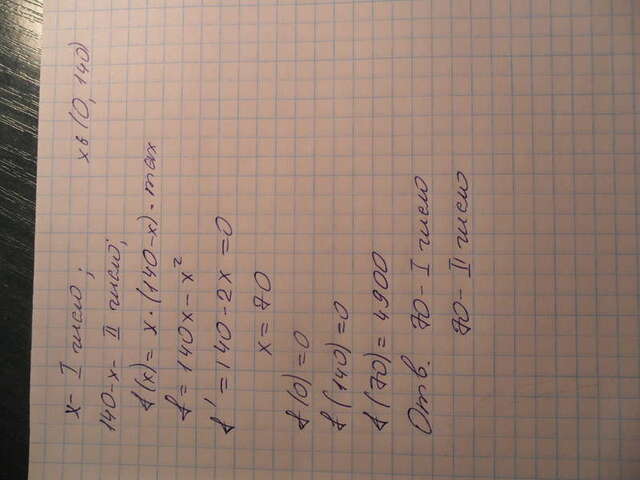 x - I число; x в (0, 140)
140-x- II число;
f(x) = x · (140-x) - max
f = 140x - x²
f' = 140 - 2x = 0
x = 70
f(0) = 0
f(140) = 0
f(70) = 4900
Отв. 70 - I число
70 - II число